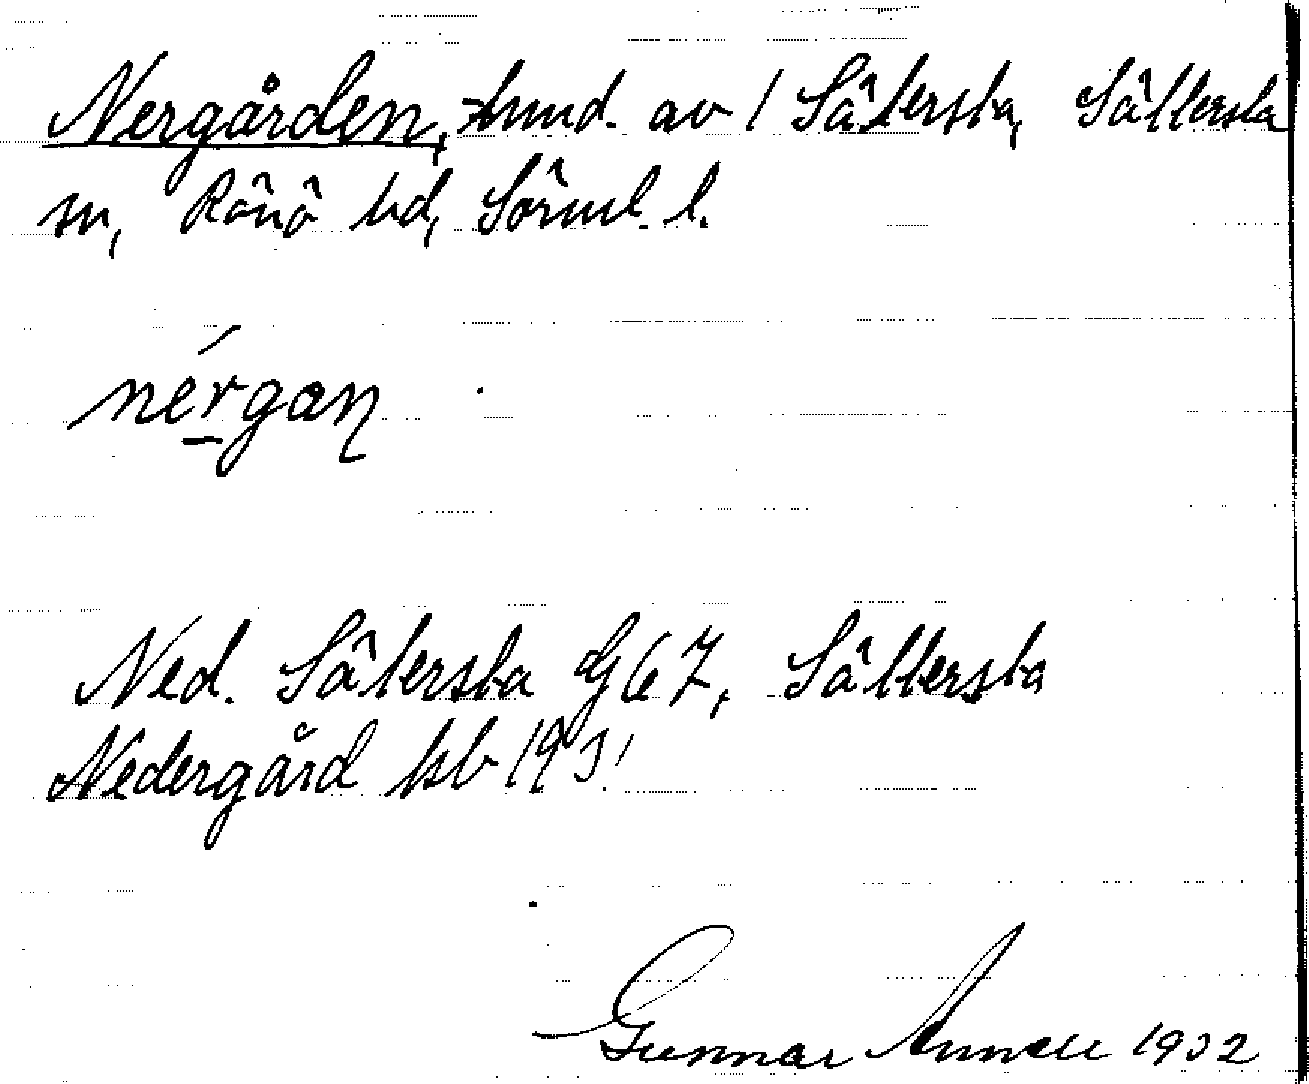 Nergården, hmd. av 1 Sätersta, Sättersta
sn, Rönö hd, Sörml. l.
nérgaɳ
Ned. Sätersta G 67, Sättersta
Nedergård kb 1931
Gunnar Annell 1932